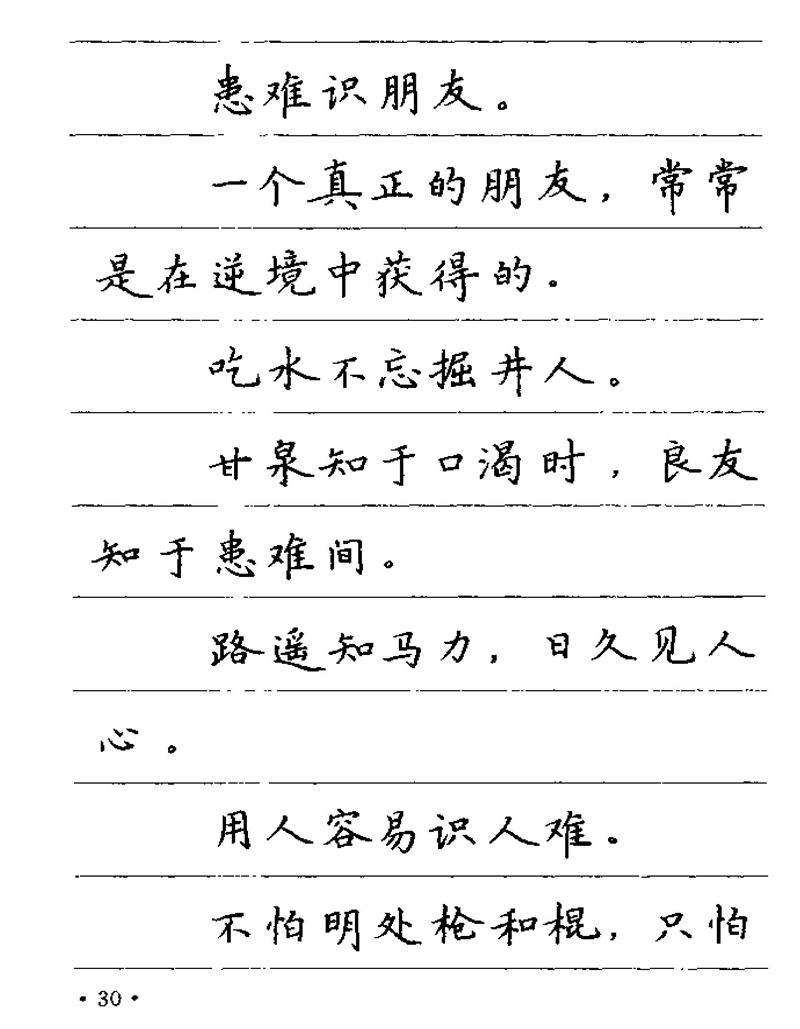 患难识朋友。
一个真正的朋友，常常
是在逆境中获得的。
吃水不忘掘井人。
甘泉知于口渴时，良友
知于患难间。
路遥知马力，日久见人
心。
用人容易识人难。
不怕明处枪和棍，只怕
·30·